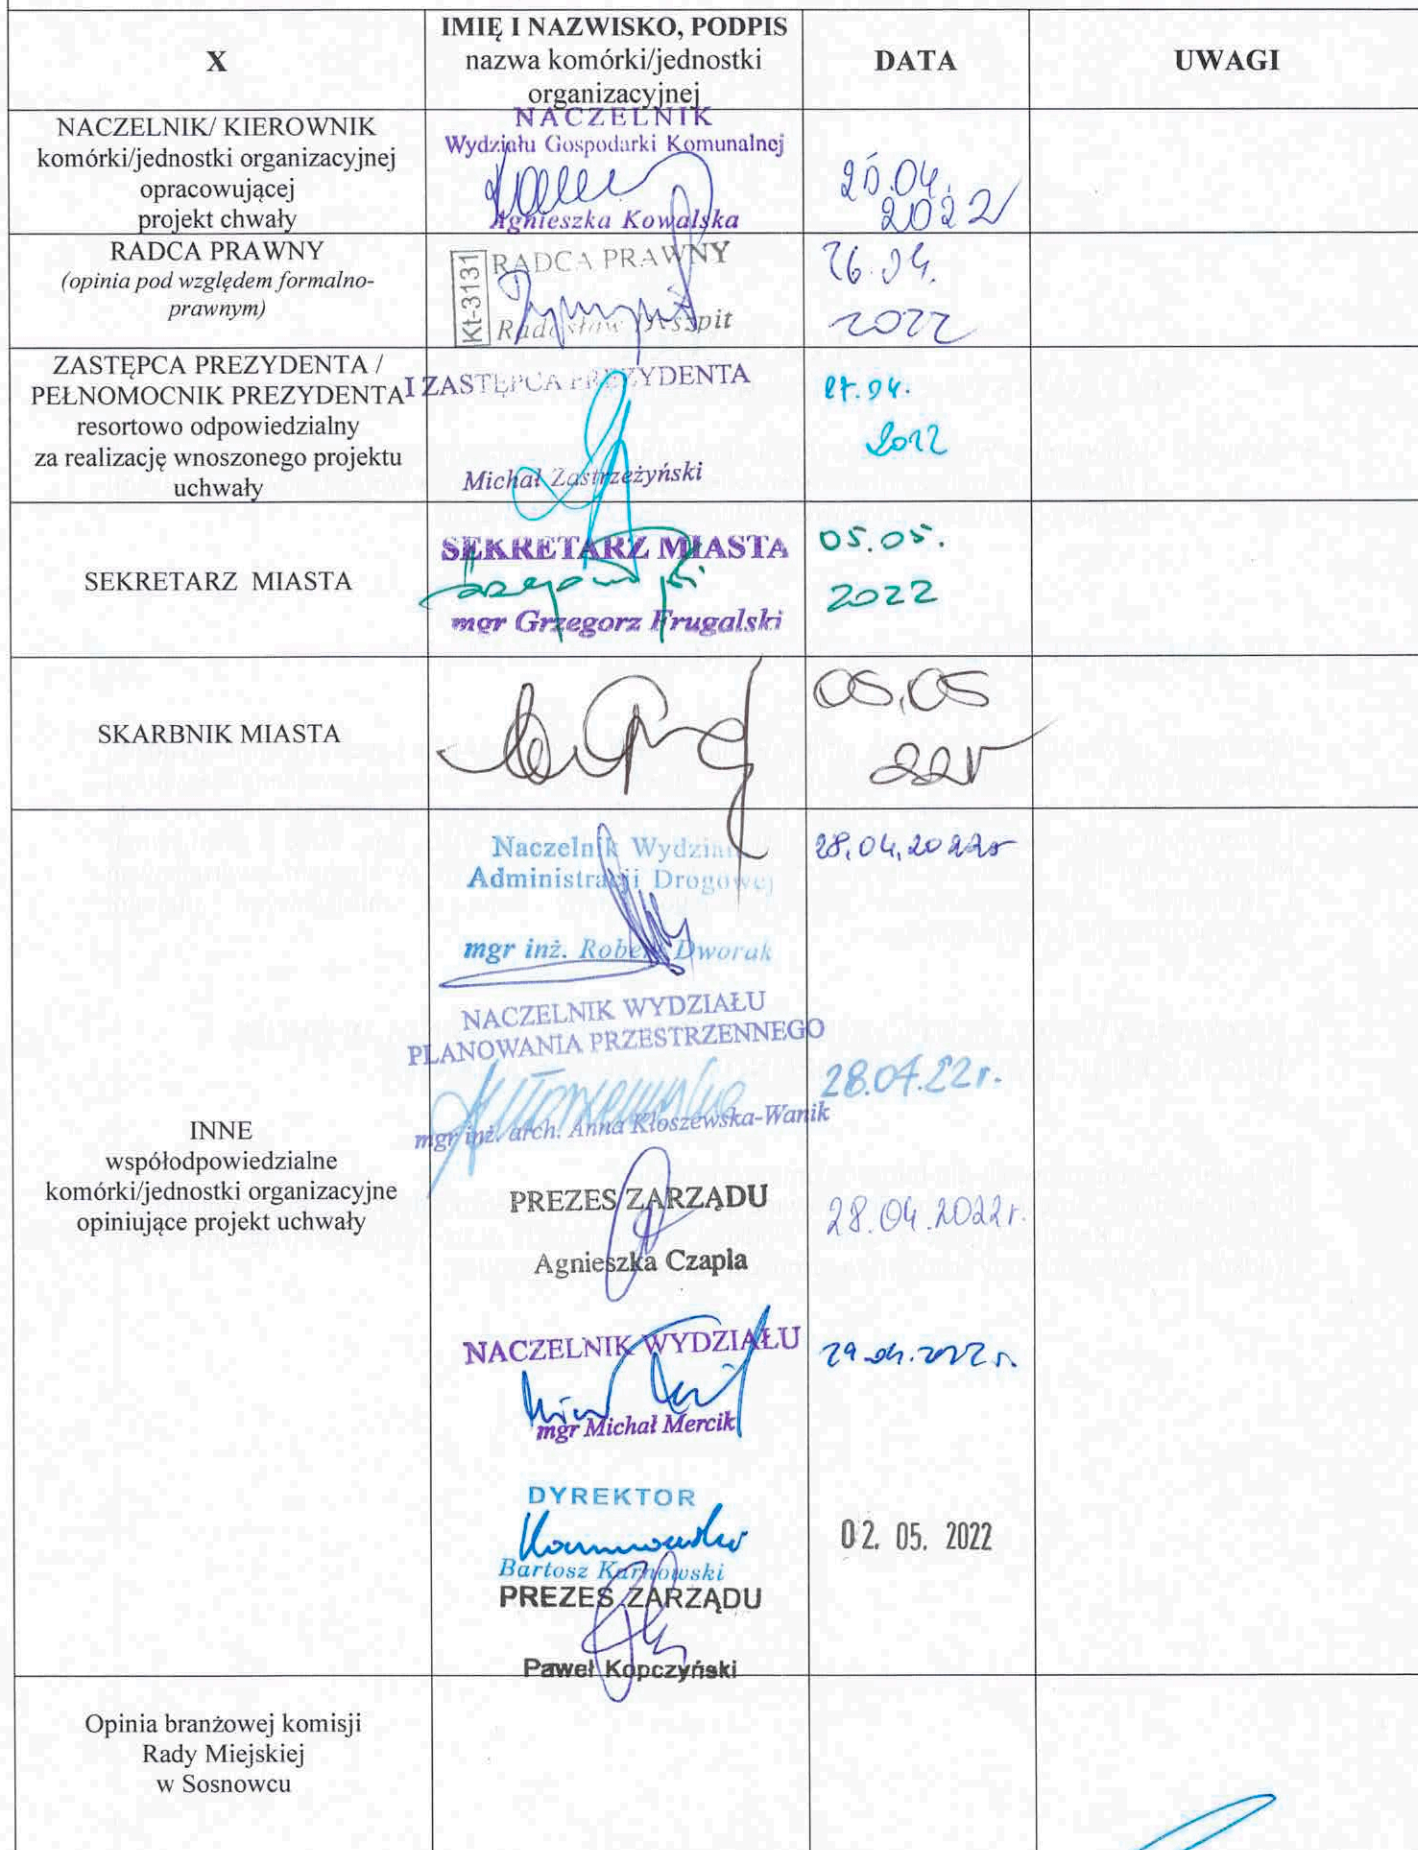 X
IMIĘ I NAZWISKO, PODPIS
nazwa komórki/jednostki
organizacyjnej
DATA
UWAGI
NACZELNIK/ KIEROWNIK
komórki/jednostki organizacyjnej
opracowującej
projekt chwały
NACZELNIK
Wydziału Gospodarki Komunalnej
Agnieszka Kowalska
04.
2022
RADCA PRAWNY
(opinia pod względem formalno-
prawnym)
Kt-3131
RADCA PRAWNY
Radosław
26.04.
2022
ZASTĘPCA PREZYDENTA /
PEŁNOMOCNIK PREZYDENTA
resortowo odpowiedzialny
za realizację wnoszonego projektu
uchwały
I ZASTĘPCA PREZYDENTA
Michał Zastrzeżyński
27.04.
2022
SEKRETARZ MIASTA
SEKRETARZ MIASTA
mgr Grzegorz Frugalski
05.05.
2022
SKARBNIK MIASTA
05,05
22r
INNE
współodpowiedzialne
komórki/jednostki organizacyjne
opiniujące projekt uchwały
Naczelnik Wydziału
Administracji Drogowej
mgr inż. Robert Dworak
28,04,2022r
NACZELNIK WYDZIAŁU
PLANOWANIA PRZESTRZENNEGO
mgr inż. arch. Anna Kłoszewska-Wanik
28.04.22r.
PREZES ZARZĄDU
Agnieszka Czapla
28.04.2022r.
NACZELNIK WYDZIAŁU
mgr Michał Mercik
29.04.2022 r.
DYREKTOR
Bartosz Karnowski
02. 05. 2022
PREZES ZARZĄDU
Paweł Kopczyński
Opinia branżowej komisji
Rady Miejskiej
w Sosnowcu